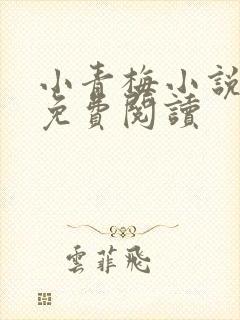 小青梅小説
免費閱讀
雲菲飛